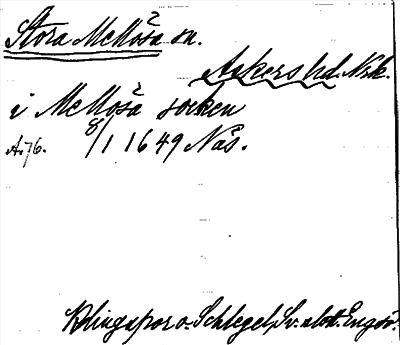 Stora Mellösa sn.
Askers hd. Nrk.
i Mellösa socken
A:76. 8/1 1649 Näs.
Klingspor o. Schlegel, Sv. slott. Engsö.